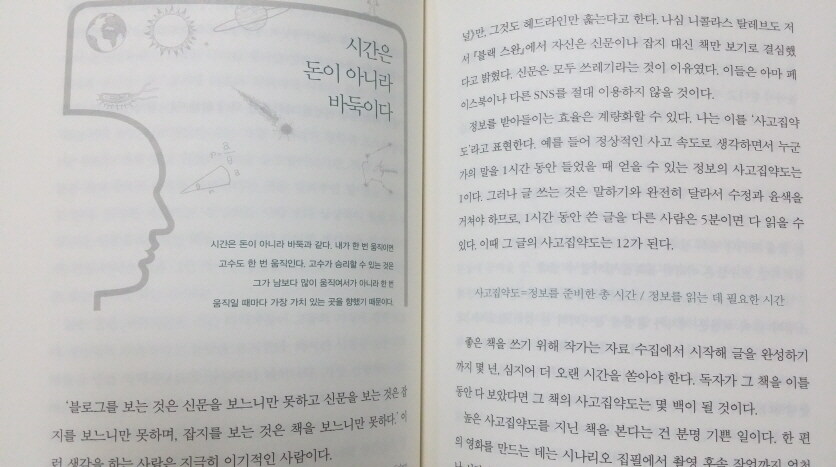 시간은
돈이 아니라
바둑이다
시간은 돈이 아니라 바둑과 같다. 내가 한 번 움직이면
고수도 한 번 움직인다. 고수가 승리할 수 있는 것은
그가 남보다 많이 움직여서가 아니라 한 번
움직일 때마다 가장 가치 있는 곳을 향했기 때문이다.
'블로그를 보는 것은 신문을 보느니만 못하고 신문을 보는 것은 잡
지를 보느니만 못하며, 잡지를 보는 것은 책을 보느니만 못하다.' 이
런 생각을 하는 사람은 지극히 이기적인 사람이다.
널》만, 그것도 헤드라인만 훑는다고 한다. 나심 니콜라스 탈레브도 저
서 『블랙 스완』에서 자신은 신문이나 잡지 대신 책만 보기로 결심했
다고 밝혔다. 신문은 모두 쓰레기라는 것이 이유였다. 이들은 아마 페
이스북이나 다른 SNS를 절대 이용하지 않을 것이다.
정보를 받아들이는 효율은 계량화할 수 있다. 나는 이를 '사고집약
도'라고 표현한다. 예를 들어 정상적인 사고 속도로 생각하면서 누군
가의 말을 1시간 동안 들었을 때 얻을 수 있는 정보의 사고집약도는
1이다. 그러나 글 쓰는 것은 말하기와 완전히 달라서 수정과 윤색을
거쳐야 하므로, 1시간 동안 쓴 글을 다른 사람은 5분이면 다 읽을 수
있다. 이때 그 글의 사고집약도는 12가 된다.
사고집약도=정보를 준비한 총 시간 / 정보를 읽는 데 필요한 시간
좋은 책을 쓰기 위해 작가는 자료 수집에서 시작해 글을 완성하기
까지 몇 년, 심지어 더 오랜 시간을 쏟아야 한다. 독자가 그 책을 이틀
동안 다 보았다면 그 책의 사고집약도는 몇 백이 될 것이다.
높은 사고집약도를 지닌 책을 본다는 건 분명 기쁜 일이다. 한 편
의 영화를 만드는 데는 시나리오 집필에서 촬영 후속 작업까지